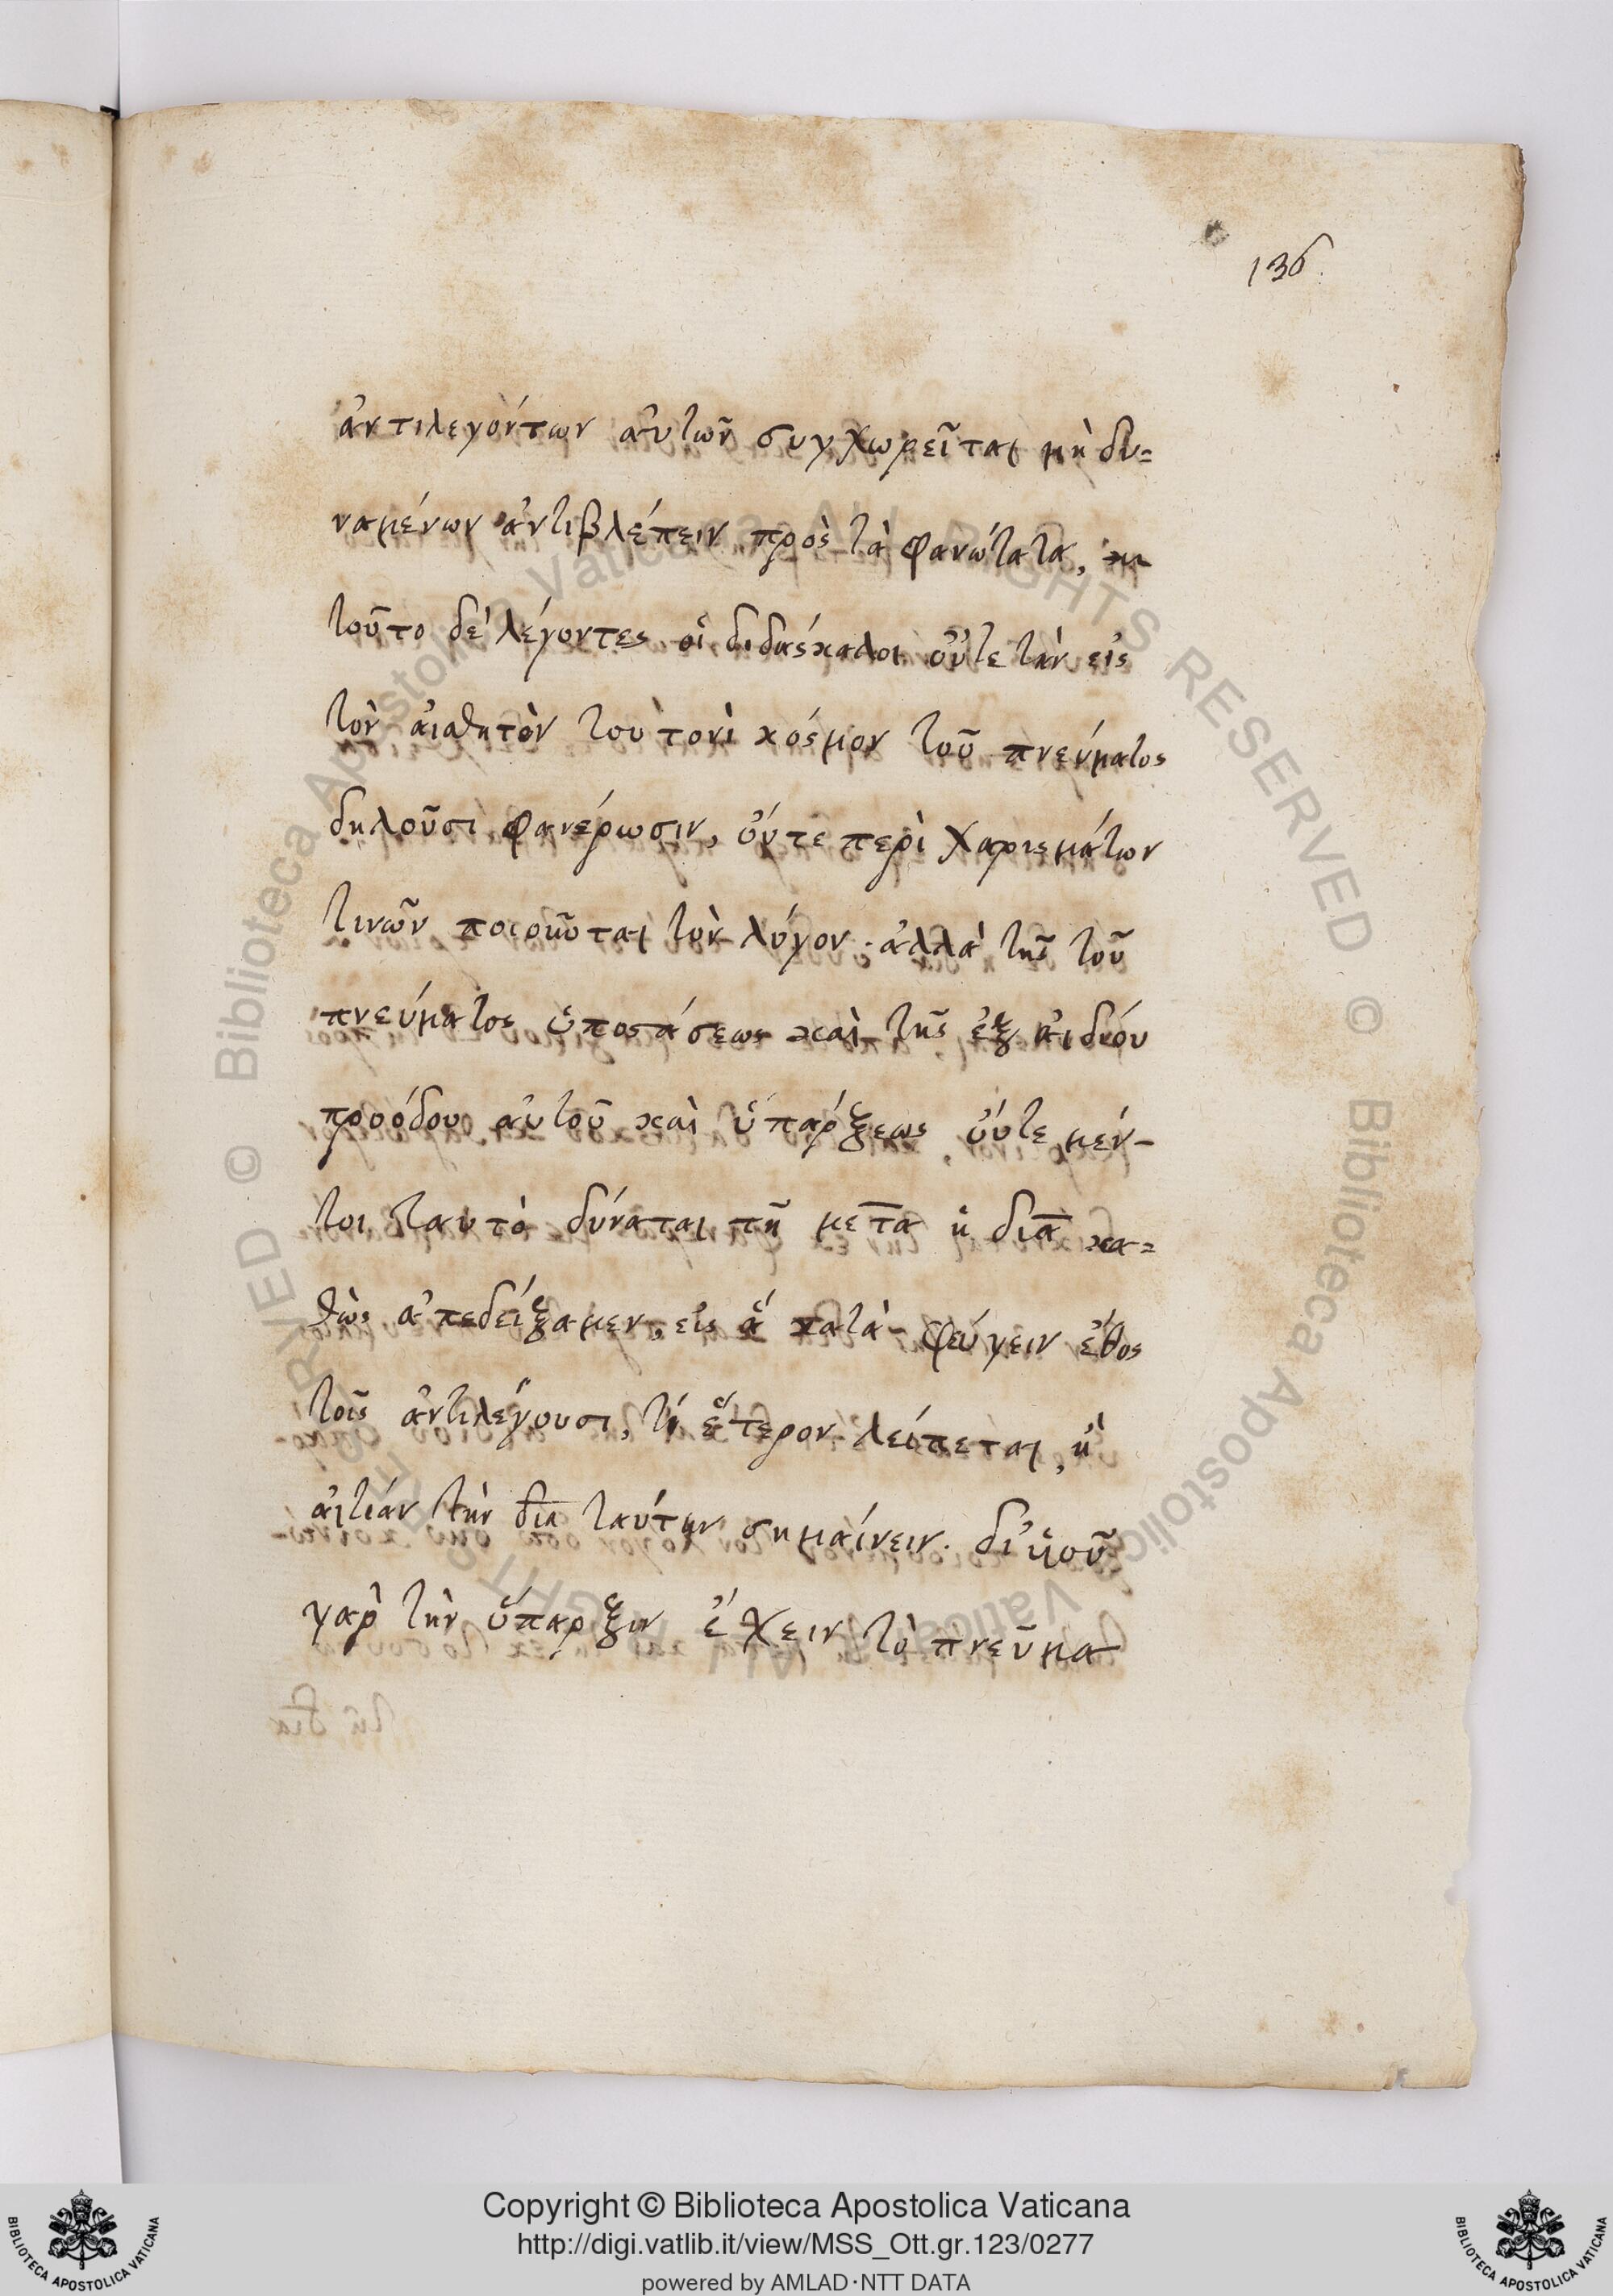 136.
ἀντιλεγόντων αὐτῶν συγχωρεῖται μὴ δυ=
ναμένων ἀντιβλέπειν πρὸς τὰ φανώτατα,
τοῦτο δὲ λέγοντες οἱ διδάσκαλοι οὔτε τὴν εἰς
τὸν αἰσθητὸν τουτονὶ κόσμον τοῦ πνεύματος
δηλοῦσι φανέρωσιν, οὔτε περὶ χαρισμάτων
τινῶν ποιοῦνται τὸν λόγον· ἀλλὰ τῆς τοῦ
πνεύματος ὑποστάσεως καὶ τῆς ἐξ ἀιδίου
προόδου αὐτοῦ καὶ ὑπάρξεως οὔτε μέν-
τοι ταυτὸ δύναται τῇ μετα ἡ δια κα=
θὼς ἀπεδείξαμεν, εἰς ἃ κατὰ-φεύγειν ἔθος
τοῖς ἀντιλέγουσι, τί ἕτερον λείπεται, ἢ
αἰτίαν τὴν δια ταύτην σημαίνειν. δι' υἱοῦ
γὰρ τὴν ὕπαρξιν ἔχειν τὸ πνεῦμα
Copyright © Biblioteca Apostolica Vaticana
http://digi.vatlib.it/view/MSS_Ott.gr.123/0277
powered by AMLAD·NTT DATA
BIBLIOTECA APOSTOLICA VATICANA
BIBLIOTECA APOSTOLICA VATICANA